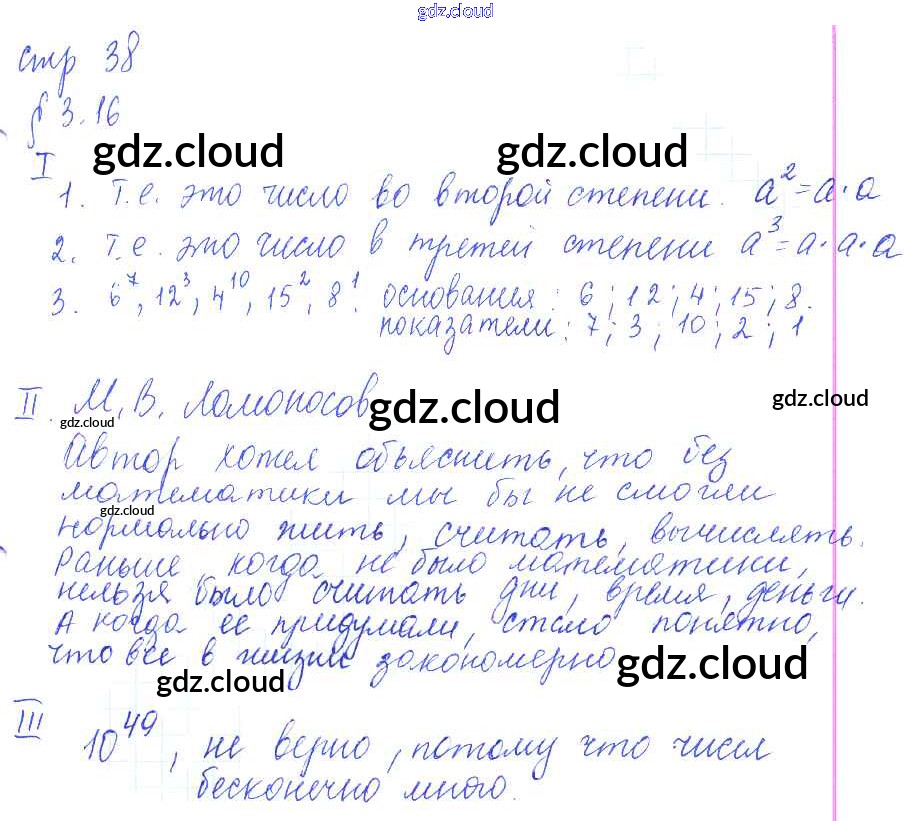 gdz.cloud
стр 38
§ 3.16
gdz.cloud gdz.cloud
I
1. Т.е. это число во второй степени. a² = a · a
2. Т.е. это число в третей степени a³ = a · a · a
3. 6⁷, 12³, 4¹⁰, 15², 8¹. основания: 6; 12; 4; 15; 8.
показатели: 7; 3; 10; 2; 1
II. М. В. Ломоносов
gdz.cloud gdz.cloud gdz.cloud
Автор хотел объяснить, что без
математики мы бы не смогли
gdz.cloud
нормально жить, считать, вычислять.
Раньше, когда не было математики,
нельзя было считать дни, время, деньги.
А когда ее придумали, стало понятно,
что все в жизни закономерно
gdz.cloud gdz.cloud
III
10⁴⁹, не верно, потому что чисел
бесконечно много.